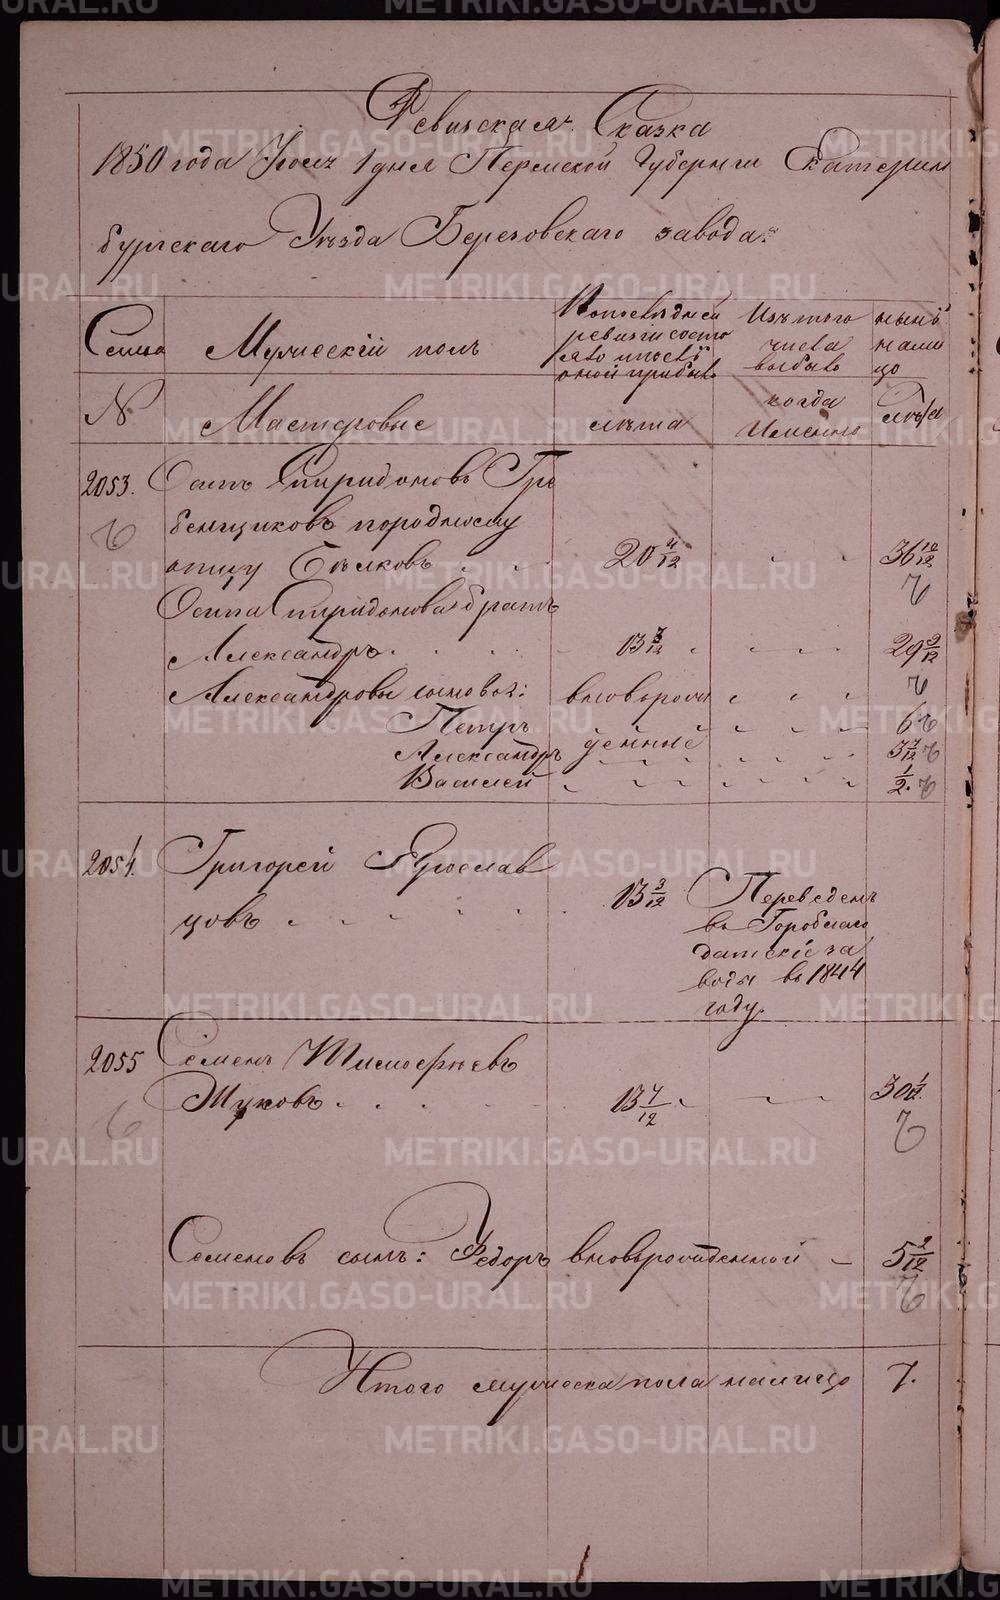 Ревизская Сказка
1850 года Июля 1 дня Пермской Губернии Екатерин
бургскаго Уезда Березовскаго завода.
Семьи
Мужеский пол
По последней
ревизии состо
яло и после
оной прибыло
Из того
числа
выбыло
ныне
на ли
цо
N
Мастеровые
лета
когда
Именно
Лета
2053. Осип Спиридонов Гре
бенщиков породному
отцу Бычков 20 4/12 36 10/12
Осипа Спиридонова брат
Александр 13 3/12 29 9/12
Александровы сыновья: вновьрож
Петр денные 6
Александр 3 7/12
Василей 1/2.
2054. Григорей Ярослав
цов 13 3/12
Переведен
в Гороблаго
датские за
воды в 1844
году.
2055 Семен Тимофеев
Жуков 13 7/12 30 1/12
Семенов сын: Федор вновьрожденной 5 2/12
Итого мужеска пола налицо 7.
METRIKI.GASO-URAL.RU